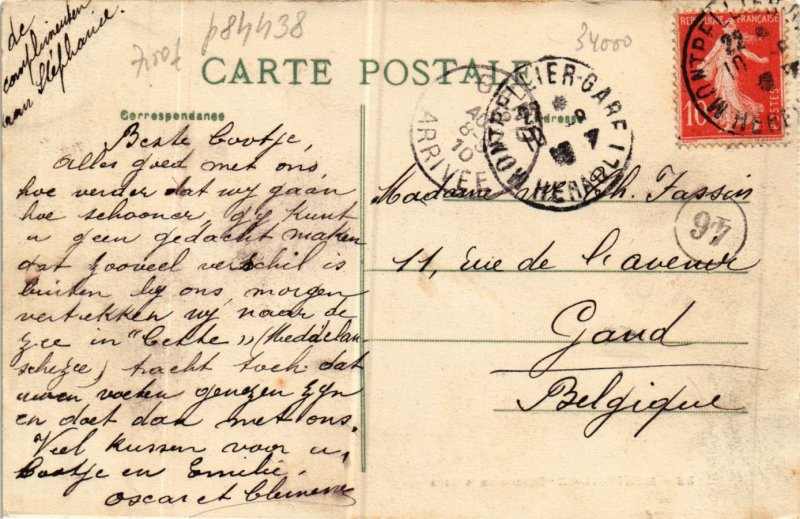 de
complimenten
aan Stephanie.
7,00f p84438
34000
CARTE POSTALE
Correspondance
Adresse
Beste Cootje,
Alles goed met ons,
hoe verder dat wij gaan
hoe schooner, gij kunt
u geen gedacht maken
dat zooveel verschil is
buiten bij ons, morgen
vertrekken wij naar de
zee in "Cette" (Meddelan-
schezee) tracht toch dat
uwen voeten genezen zijn
en doet dan met ons.
Veel kussen voor u,
Cootje en Emilie.
Oscar et Clemence
Madame Ch. Fassin
11, rue de l'avenir
Gand
Belgique
REPUBLIQUE FRANÇAISE
10
POSTES
MONTPELLIER-GARE
HERAULT
ARRIVÉE
46